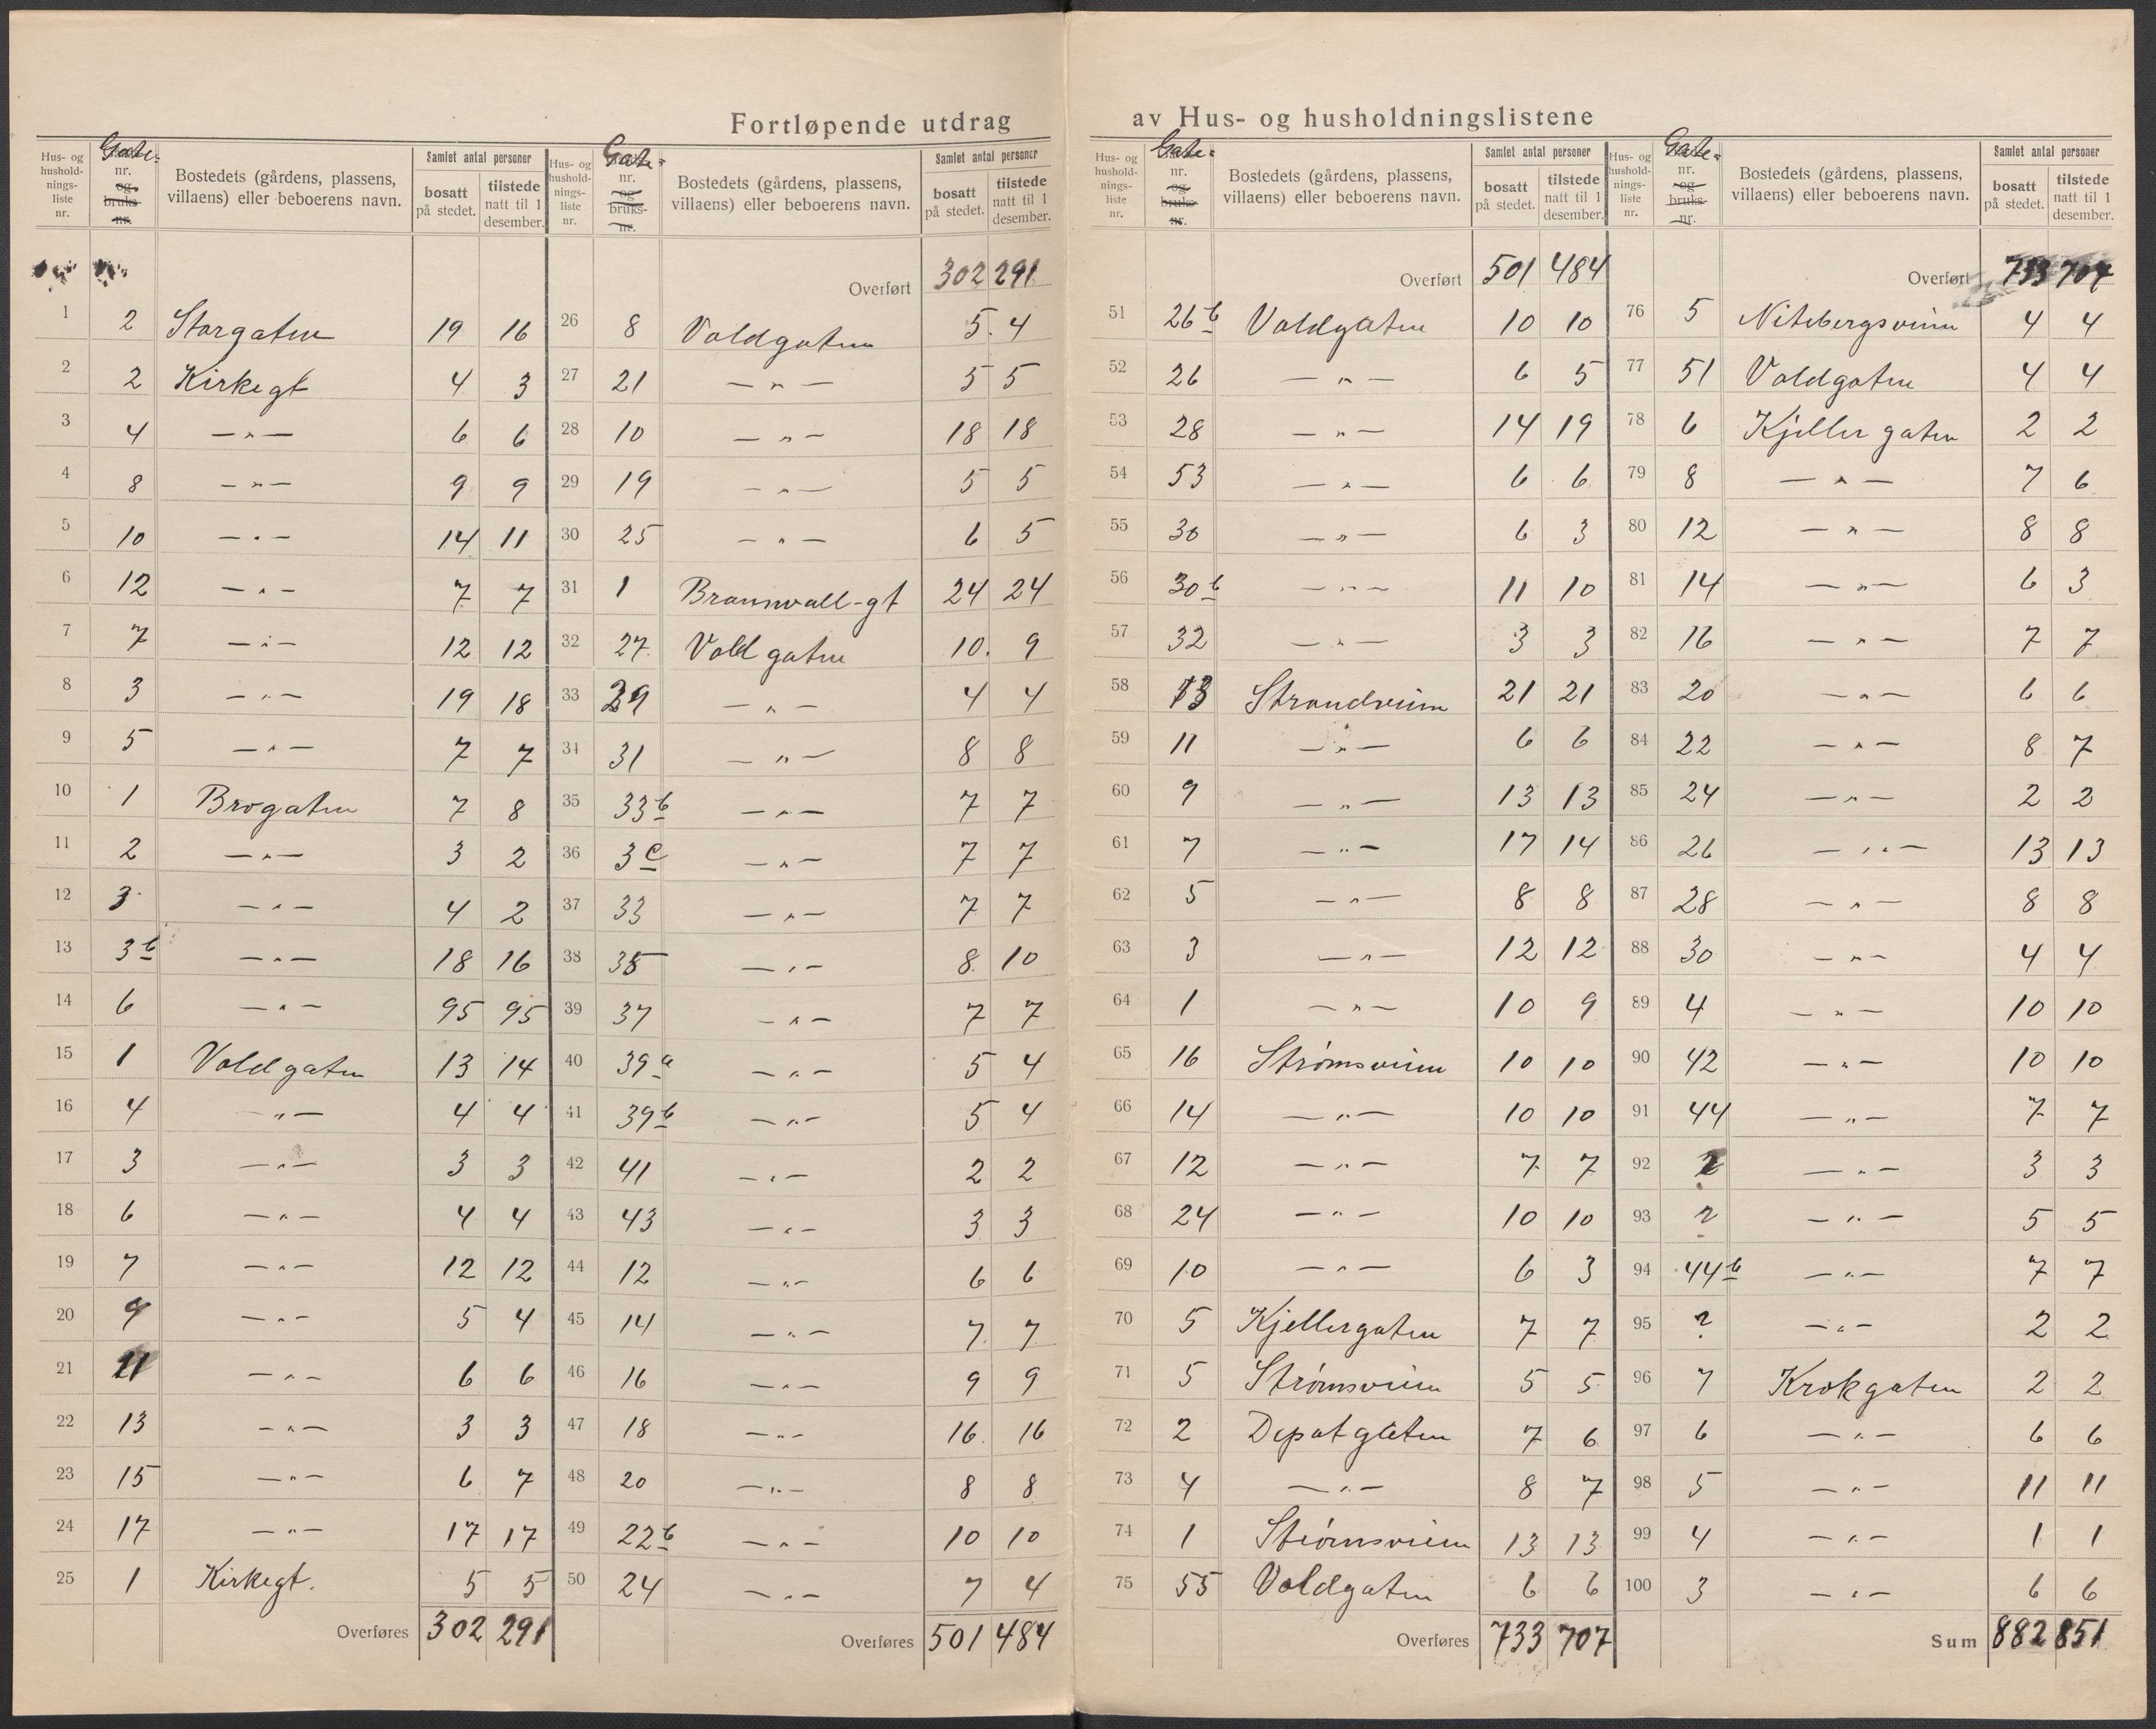 Fortløpende utdrag av Hus- og husholdningslistene
Hus- og hushold- nings- liste nr. | Gate- nr. og bruks- nr. | Bostedets (gårdens, plassens, villaens) eller beboerens navn. | Samlet antal personer | bosatt på stedet. | tilstede natt til 1 desember.
1 2 Storgaten 19 16
2 2 Kirkegt 4 3
3 4 —"— 6 6
4 8 —"— 9 9
5 10 —"— 14 11
6 12 —"— 7 7
7 7 —"— 12 12
8 3 —"— 19 18
9 5 —"— 7 7
10 1 Brogaten 7 8
11 2 —"— 3 2
12 3 —"— 4 2
13 3b —"— 18 16
14 6 —"— 95 95
15 1 Voldgaten 13 14
16 4 —"— 4 4
17 3 —"— 3 3
18 6 —"— 4 4
19 7 —"— 12 12
20 9 —"— 5 4
21 11 —"— 6 6
22 13 —"— 3 3
23 15 —"— 6 7
24 17 —"— 17 17
25 1 Kirkegt. 5 5
Overføres 302 291
Hus- og hushold- nings- liste nr. | Gate- nr. og bruks- nr. | Bostedets (gårdens, plassens, villaens) eller beboerens navn. | Samlet antal personer | bosatt på stedet. | tilstede natt til 1 desember.
Overført 302 291
26 8 Voldgaten 5 4
27 21 —"— 5 5
28 10 —"— 18 18
29 19 —"— 5 5
30 25 —"— 6 5
31 1 Braunwall-gt 24 24
32 27 Voldgaten 10 9
33 29 —"— 4 4
34 31 —"— 8 8
35 33b —"— 7 7
36 3c —"— 7 7
37 33 —"— 7 7
38 35 —"— 8 10
39 37 —"— 7 7
40 39a —"— 5 4
41 39b —"— 5 4
42 41 —"— 2 2
43 43 —"— 3 3
44 12 —"— 6 6
45 14 —"— 7 7
46 16 —"— 9 9
47 18 —"— 16 16
48 20 —"— 8 8
49 22b —"— 10 10
50 24 —"— 7 4
Overføres 501 484
Hus- og hushold- nings- liste nr. | Gate- nr. og bruks- nr. | Bostedets (gårdens, plassens, villaens) eller beboerens navn. | Samlet antal personer | bosatt på stedet. | tilstede natt til 1 desember.
Overført 501 484
51 26b Voldgaten 10 10
52 26 —"— 6 5
53 28 —"— 14 19
54 53 —"— 6 6
55 30 —"— 6 3
56 30b —"— 11 10
57 32 —"— 3 3
58 13 Strandveien 21 21
59 11 —"— 6 6
60 9 —"— 13 13
61 7 —"— 17 14
62 5 —"— 8 8
63 3 —"— 12 12
64 1 —"— 10 9
65 16 Strømsveien 10 10
66 14 —"— 10 10
67 12 —"— 7 7
68 24 —"— 10 10
69 10 —"— 6 3
70 5 Kjellergaten 7 7
71 5 Strømsveien 5 5
72 2 Depotgaten 7 6
73 4 —"— 8 7
74 1 Strømsveien 13 13
75 55 Voldgaten 6 6
Overføres 733 707
Hus- og hushold- nings- liste nr. | Gate- nr. og bruks- nr. | Bostedets (gårdens, plassens, villaens) eller beboerens navn. | Samlet antal personer | bosatt på stedet. | tilstede natt til 1 desember.
Overført 733 707
76 5 Nitebergsveien 4 4
77 51 Voldgaten 4 4
78 6 Kjellergaten 2 2
79 8 —"— 7 6
80 12 —"— 8 8
81 14 —"— 6 3
82 16 —"— 7 7
83 20 —"— 6 6
84 22 —"— 8 7
85 24 —"— 2 2
86 26 —"— 13 13
87 28 —"— 8 8
88 30 —"— 4 4
89 4 —"— 10 10
90 42 —"— 10 10
91 44 —"— 7 7
92 ? —"— 3 3
93 ? —"— 5 5
94 44b —"— 7 7
95 ? —"— 2 2
96 7 Krokgaten 2 2
97 6 —"— 6 6
98 5 —"— 11 11
99 4 —"— 1 1
100 3 —"— 6 6
Sum 882 851